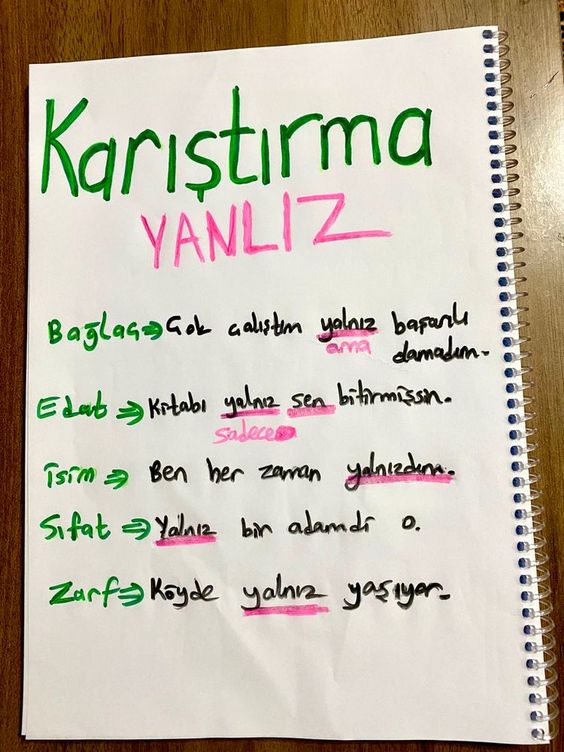 Karıştırma
YANLIZ
Bağlaç⇒ Çok çalıştım yalnız başarılı
ama
olamadım.
Edat ⇒ Kitabı yalnız sen bitirmişsin.
sadece
İsim ⇒ Ben her zaman yalnızdım.
Sıfat ⇒ Yalnız bir adamdı o.
Zarf⇒ Köyde yalnız yaşıyor.